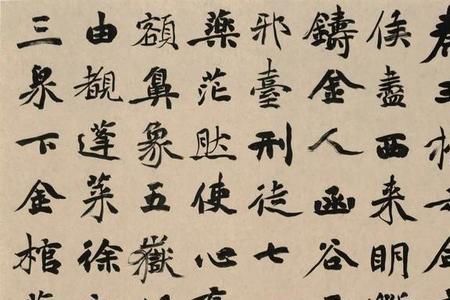 秦王
侯盡西来明
鑄金人函谷
邪臺刑徒七
藥茫然使心
額鼻象五嶽
由覩蓬萊徐
三泉下金棺